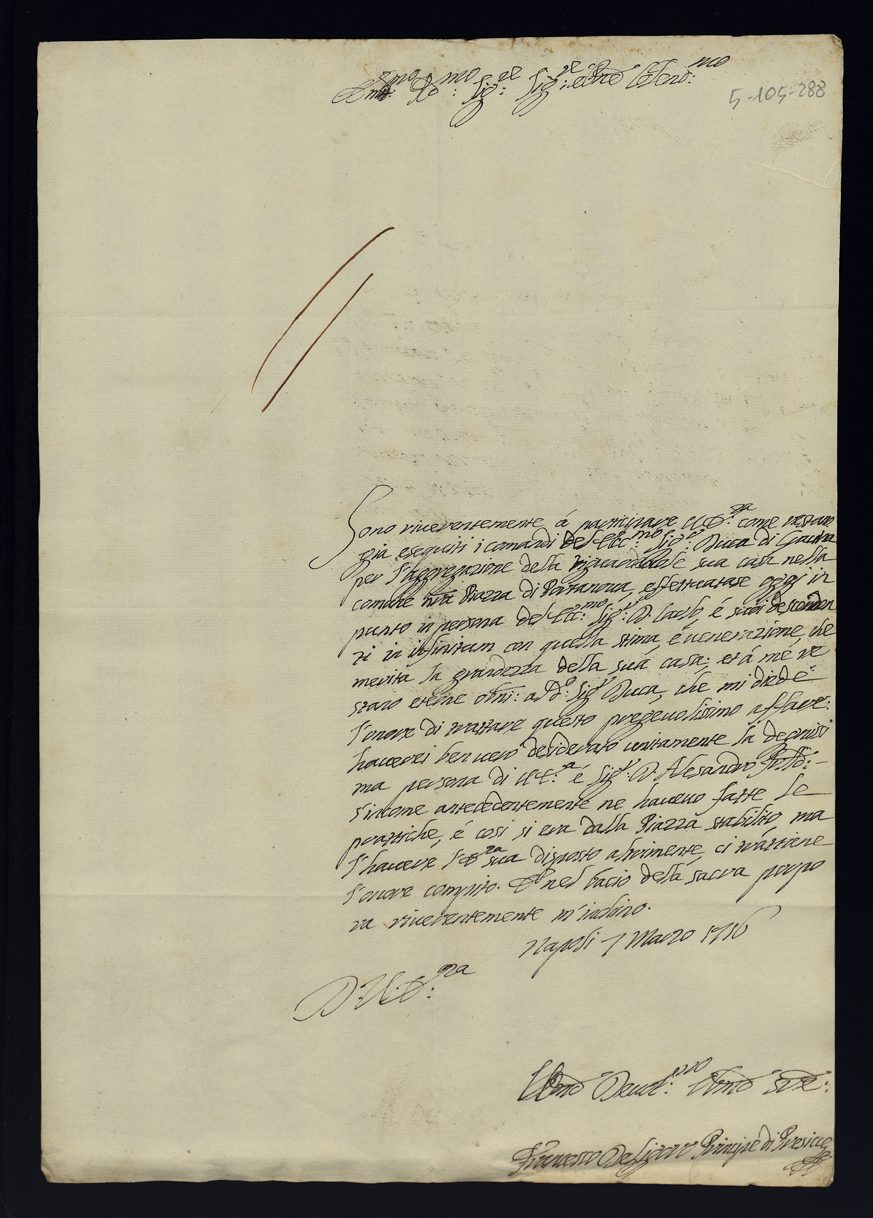 Em̃:mo Re:mo Sig:re Sig:re e Prõe Col̃end:mo
5-105-288
Sono riverentemente á participare V.E:za come restano
già eseguiti i comandi del Ecc:mo Sig:r Duca di Gravina
per l'aggregazione della riguardevole sua casa nella
comune nr̃a Piazza di Portanova, effettuatase oggi in
punto in persona del Ecc:mo Sig:r D. Carlo, é suoi descenden
ti in infinitum con quella stima, é venerazione, che
merita la grandezza della sua casa; et á me re
stano eterne obni: al d:o Sig:r Duca, che mi diede
l'onore di trattare questo pregevolissimo affare:
haverei ben vero desiderato unitamente la degnissi
ma persona di V.E:a é Sig:r D. Alesandro
sicome antecedentemente ne havevo fatte le
prattiche, é così si era dalla Piazza stabilito, ma
l'havere l'E:za sua disposto altrimente, ci trattiene
l'onore compito. E nel bacio della sacra porpo
ra riverentemente m'inchino.
Napoli 7 Marzo 1716
D. V. E:za
Devot:mo Obl̃mo
Francesco De Liguoro Principe di Presicce